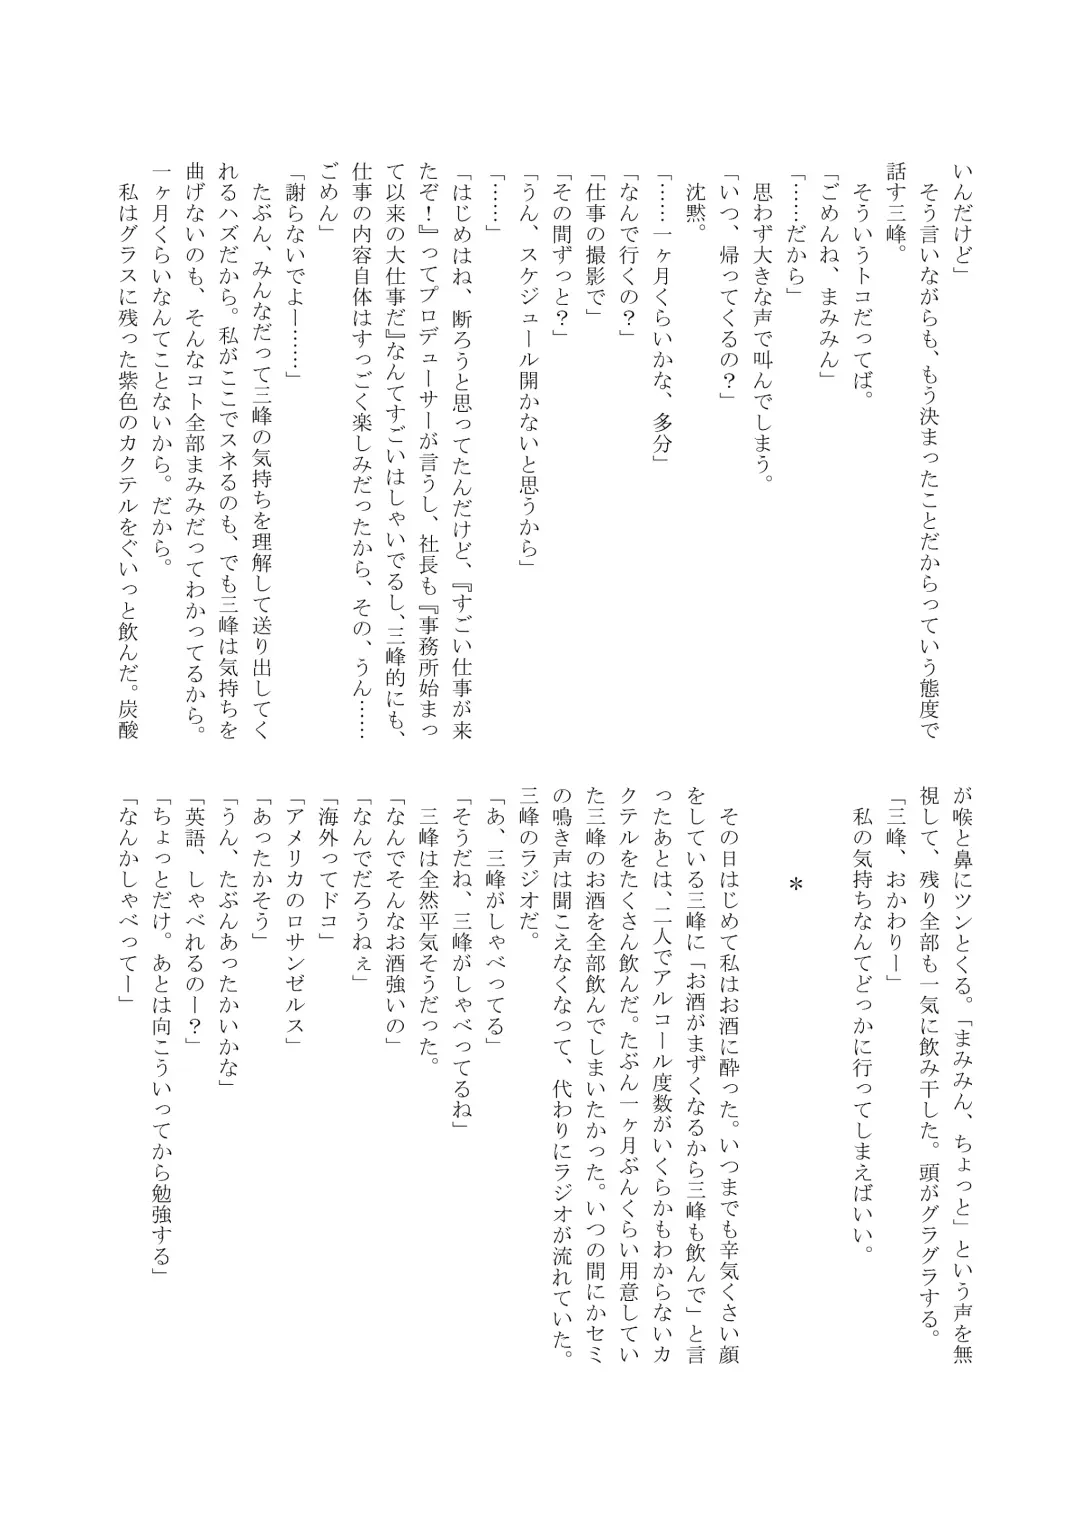 いんだけど」
そう言いながらも、もう決まったことだからっていう態度で
話す三峰。
そういうトコだってば。
「ごめんね、まみみん」
「……だから」
思わず大きな声で叫んでしまう。
「いつ、帰ってくるの？」
沈黙。
「……一ヶ月くらいかな、多分」
「なんで行くの？」
「仕事の撮影で」
「その間ずっと？」
「うん、スケジュール開かないと思うから」
「……」
「はじめはね、断ろうと思ってたんだけど、『すごい仕事が来
たぞ！』ってプロデューサーが言うし、社長も『事務所始まっ
て以来の大仕事だ』なんてすごいはしゃいでるし、三峰的にも、
仕事の内容自体はすっごく楽しみだったから、その、うん……
ごめん」
「謝らないでよー……」
たぶん、みんなだって三峰の気持ちを理解して送り出してく
れるハズだから。私がここでスネるのも、でも三峰は気持ちを
曲げないのも、そんなコト全部まみみだってわかってるから。
一ヶ月くらいなんてことないから。だから。
私はグラスに残った紫色のカクテルをぐいっと飲んだ。炭酸
が喉と鼻にツンとくる。「まみみん、ちょっと」という声を無
視して、残り全部も一気に飲み干した。頭がグラグラする。
「三峰、おかわりー」
私の気持ちなんてどっかに行ってしまえばいい。
＊
その日はじめて私はお酒に酔った。いつまでも辛気くさい顔
をしている三峰に「お酒がまずくなるから三峰も飲んで」と言
ったあとは、二人でアルコール度数がいくらかもわからないカ
クテルをたくさん飲んだ。たぶん一ヶ月ぶんくらい用意してい
た三峰のお酒を全部飲んでしまいたかった。いつの間にかセミ
の鳴き声は聞こえなくなって、代わりにラジオが流れていた。
三峰のラジオだ。
「あ、三峰がしゃべってる」
「そうだね、三峰がしゃべってるね」
三峰は全然平気そうだった。
「なんでそんなお酒強いの」
「なんでだろうねぇ」
「海外ってドコ」
「アメリカのロサンゼルス」
「あったかそう」
「うん、たぶんあったかいかな」
「英語、しゃべれるのー？」
「ちょっとだけ。あとは向こういってから勉強する」
「なんかしゃべってー」